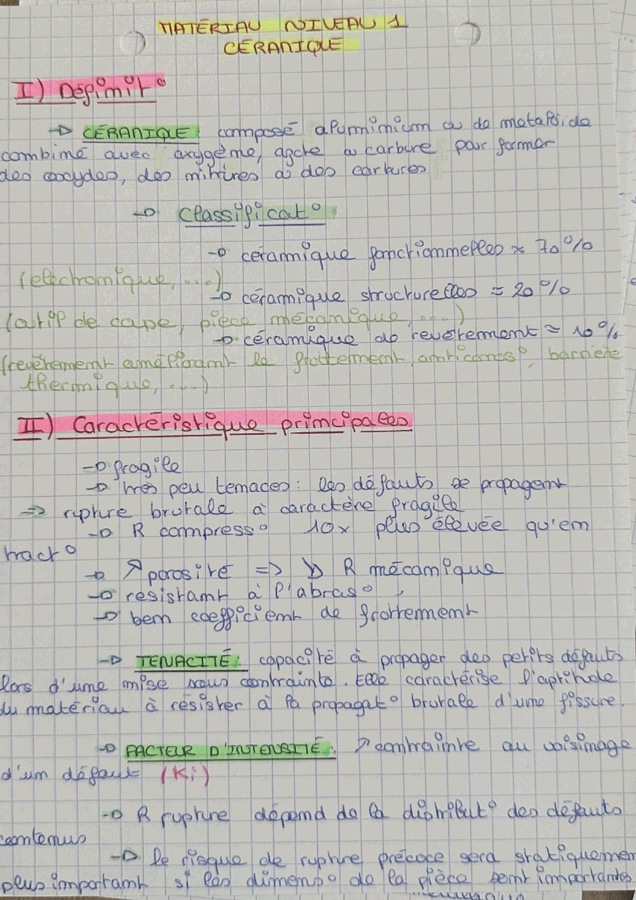 MATÉRIAU NIVEAU 1
CÉRAMIQUE
I) Définit°
→ CÉRAMIQUE : composé alumnimium ou de metalloïde
combiné avec oxygène, azote ou carbure pour former
des oxydes, des nitrures ou des carbures
→ Classificat°
→ céramique fonctionnelles ≈ 70%
(electronique, ...)
→ céramique structurelles ≈ 20%
(outil de coupe, pièce mécanique, ...)
→ céramique de revêtement ≈ 10%
(revêtement améliorant le frottement, anticorros°, barrière
thermique, ...)
II) Caractéristique principales
→ fragile
→ très peu tenaces : les défauts se propagent
⇒ rupture brutale à caractère fragile
→ R compress° 10x plus élevée qu'en
tract°
→ ↗ porosité ⇒ ↘ R mécanique
→ résistant à l'abras°
→ bon coefficient de frottement
→ TENACITÉ : capacité à propager des petits défauts
lors d'une mise sous contrainte. Elle caractérise l'aptitude
du matériau à résister à la propagat° brutale d'une fissure.
→ FACTEUR D'INTENSITÉ : ↗ contrainte au voisinage
d'un défaut (Ki)
→ R rupture dépend de la distribut° des défauts
contenus
→ le risque de rupture précoce sera statiquement
plus important si les dimens° de la pièce sont importantes